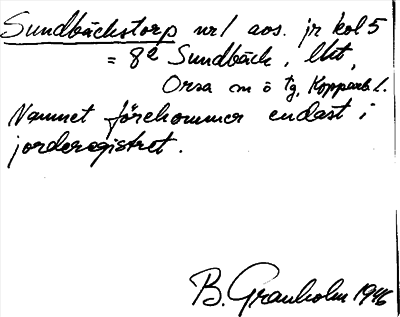 Sundbäckstorp nr 1 avs. jr kol 5
= 8e Sundbäck, lht,
Orsa sn o tg, Kopparb. l.
Namnet förekommer endast i
jorderegistret.
B. Granholm 1946